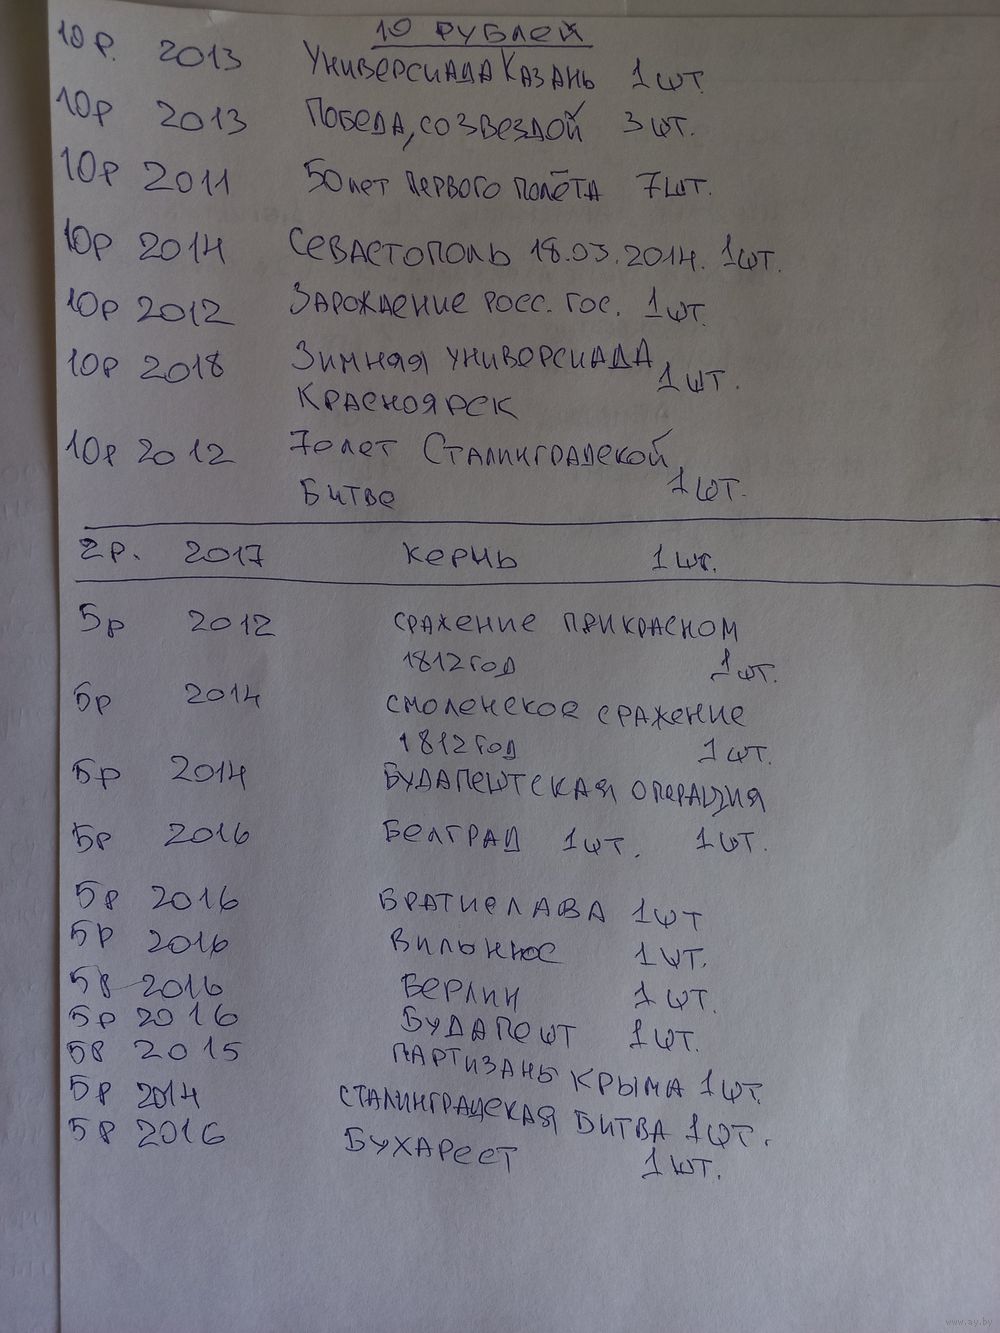 10 РУБЛЕЙ
10 Р. 2013 УНИВЕРСИАДА КАЗАНЬ 1 ШТ
10Р 2013 ПОБЕДА, СО ЗВЕЗДОЙ 3 ШТ.
10Р 2011 50 лет ПЕРВОГО ПОЛЁТА 7 ШТ.
10Р 2014 СЕВАСТОПОЛЬ 18.03.2014. 1ШТ.
10Р 2012 ЗАРОЖДЕНИЕ РОСС. ГОС. 1 ШТ.
10Р 2018 ЗИМНЯЯ УНИВЕРСИАДА 1 ШТ.
КРАСНОЯРСК
10Р 2012 70 лет СТАЛИНГРАДСКОЙ
БИТВЕ 1 ШТ.
2Р. 2017 КЕРЧЬ 1 ШТ.
5Р 2012 СРАЖЕНИЕ ПРИ КРАСНОМ
1812 ГОД 1 ШТ.
5Р 2014 СМОЛЕНСКОЕ СРАЖЕНИЕ
1812 ГОД 1 ШТ.
5Р 2014 БУДАПЕШТСКАЯ ОПЕРАЦИЯ
5Р 2016 БЕЛГРАД 1 ШТ. 1 ШТ.
5Р 2016 БРАТИСЛАВА 1 ШТ
5Р 2016 ВИЛЬНЮС 1 ШТ.
5Р 2016 БЕРЛИН 1 ШТ.
5Р 2016 БУДАПЕШТ 1 ШТ.
5Р 2015 ПАРТИЗАНЫ КРЫМА 1 ШТ
5Р 2014 СТАЛИНГРАДСКАЯ БИТВА 1 ШТ.
5Р 2016 БУХАРЕСТ 1 ШТ.
www.ay.by